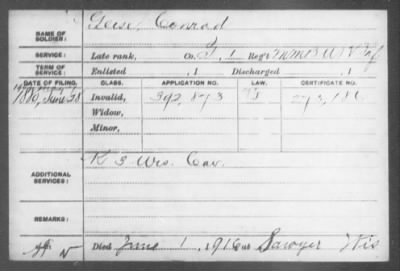 NAME OF SOLDIER: Geise, Conrad
SERVICE: Late rank, Co. I, 1 Reg't
TERM OF SERVICE: Enlisted , 1 Discharged , 1
DATE OF FILING. CLASS. APPLICATION NO. LAW. CERTIFICATE NO.
1880, June 28 Invalid, 392,873
Widow,
Minor,
ADDITIONAL SERVICES: K 3 Wis. Cav.
REMARKS:
Died June 1, 1916 at Sawyer Wis